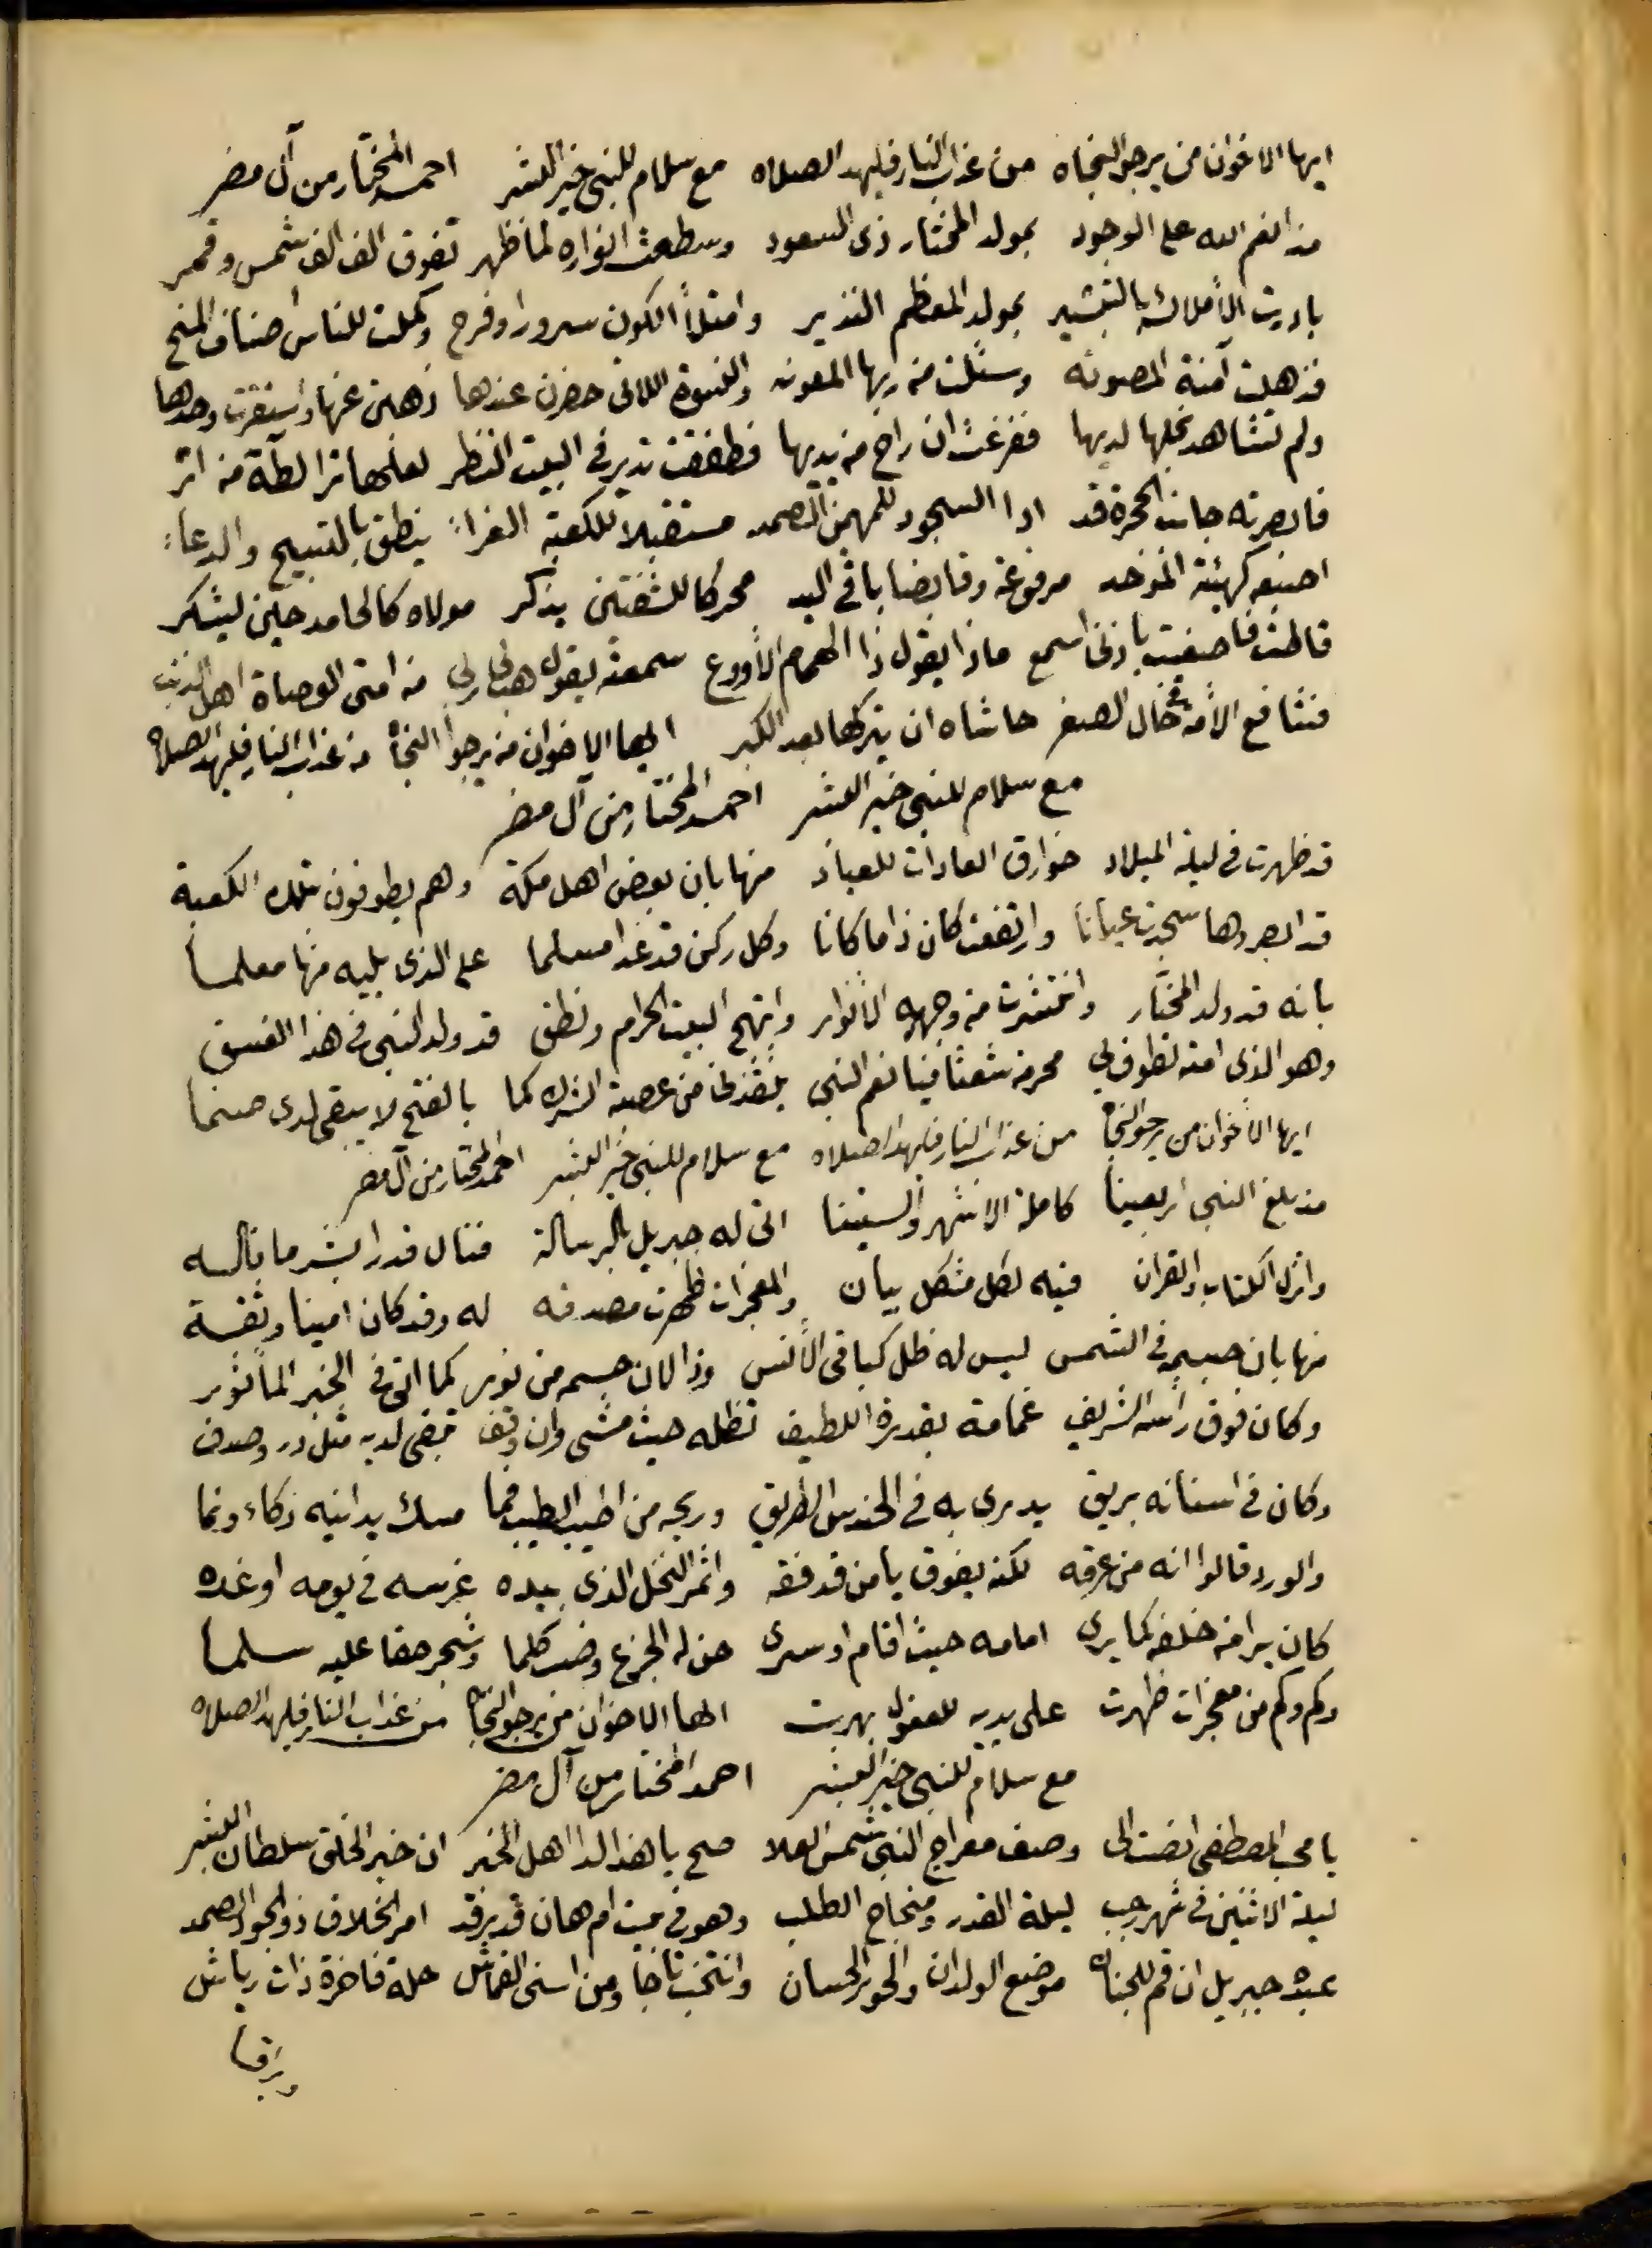 ايها الاخوان من يرجو النجاه من عذاب النار فليهد الصلاه مع سلام للنبي خير البشر احمد المختار من آل مضر
مذ انعم الله على الوجود بمولد المختار ذى السعود وسطعت انواره لما ظهر تفوق الف الف شمس وقمر
بادرت الأملاك بالتبشير بمولد المعظم النذير وامتلأ الكون سرورا وفرح وكملت للناس اصناف المنح
فذهلت آمنة المصونه وسئلت من ربها المعونه والنسوة اللاتى حضرن عندها ذهبن عنها واستقرت وحدها
ولم تشاهد نجلها لديها ففزعت ان راح من يديها فطفقت تدير في البيت النظر لعلها ترا لطه من اثر
فابصرته جانب الحجرة قد ادا السجود للمهيمن الصمد مستقبلا للكعبة الغراء ينطق بالتسبيح والدعاء
اصبعه كهيئة الموحد مرفوعة وقابضا باقي اليد محركا للشفتين يذكر مولاه كالحامد حين ليشكر
قالت فاصغيت باذني اسمع ماذا يقول ذا الهمام الأروع سمعته يقول هب لي ربي من امتى العصاة اهل الذنب
فشافع الأمة في حال الصغر حاشاه ان يتركها بعد الكبر ايها الاخوان من يرجوا النجاه من عذاب النار فليهد الصلاه
مع سلام للنبي خير البشر احمد المختار من آل مضر
قد ظهرت في ليلة الميلاد خوارق العادات للعباد منها بان بعض اهل مكة وهم يطوفون بتلك الكعبة
قد ابصروها سجدت عيانا وارتفعت كان ذا ما كانا وكل ركن قد غدا مسلما على الذى يليه منها معلما
بانه قد ولد المختار وانتشرت من وجهه الأنوار وابتهج البيت الحرام ونطق قد ولد النبي في هذا الغسق
وهو الذى امته تطوف بي محرمة شعثا فيا نعم النبي ينقذني من عصبة الشرك كما بالفتح لا يبقى لدى صنما
ايها الأخوان من يرجو النجاه من عذاب النار فليهد الصلاه مع سلام للنبي خير البشر احمد المختار من آل مضر
مذ بلغ النبي اربعينا كاملة الاشهر والسنينا اتى له جبريل بالرسالة فنال قدرا بشر ما ناله
وانزل الكتاب والقران فيه لكل مشكل بيان والمعجزات ظهرت مصدقه له وقد كان امينا وثقة
منها بان جسمه في الشمس ليس له ظل كباقى الأنس وذا لان جسمه من نور كما اتى في الخبر المأثور
وكان فوق رأسه الشريف غمامة بقدرة اللطيف تظله حيث مشى وان وقف تبقى لديه مثل در وصدف
وكان في اسنانه بريق يدرى به في الحندس الطريق وريحه من اطيب الطيب فما مسك يدانيه زكاء ونما
والورد قالوا انه من عرقه لكنه يفوق يا من قد فقه واثمر النخل الذى بيده غرسه في يومه او غده
كان يرا من خلفه كما يرى امامه حيث اقام او سرى حن له الجزع وضب كلما وشجر حقا عليه سلما
وكم وكم من معجزات ظهرت على يديه للعقول بهرت ايها الاخوان من يرجو النجاه من عذاب النار فليهد الصلاه
مع سلام للنبي خير البشر احمد المختار من آل مضر
يا محب المصطفى انصت الى وصف معراج النبي شمس العلا صح يا هذا لدا اهل الخبر ان خير الخلق سلطان البشر
ليلة الاثنين في شهر رجب ليلة القدر ومنجاح الطلب وهو في بيت ام هان قد رقد امر الخلاق ذو الجود الصمد
عبده جبريل ان قم للجنان موضع الولدان والحور الحسان وانتخب تاجا ومن اسنى القماش حلة فاخرة ذات رياش
وبراقا